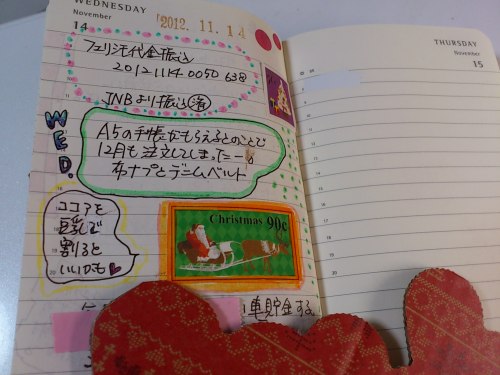 WEDNESDAY
November
14
'2012. 11. 14
フェリシモ代金振込
20121114 0050 638
JNBより振込(済)
WED.
A5の手帳がもらえるとのことで
12月も注文してしまったー。
布ナプとデニムベルト
ココアを
豆乳で
割ると
いいかも♥
Christmas 90c
貯金する
THURSDAY
November
15